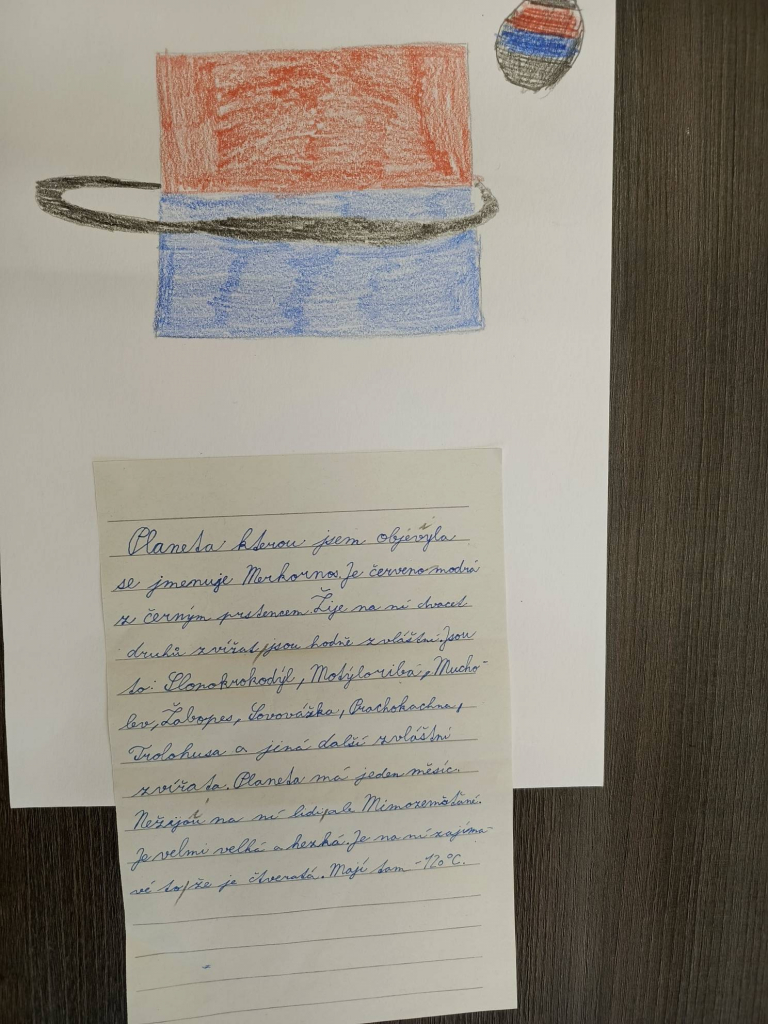 Planeta kterou jsem objevyla
se jmenuje Merkornos. Je červenomodrá
z černým prstencem. Žije na ní dvacet
druhů zvířat, jsou hodně zvláštní. Jsou
to: Slonokrokodýl, Motýloriba, Mucho-
lev, Žabopes, Sovovážka, Prachokachna,
Trolohusa a jiná další zvláštní
zvířata. Planeta má jeden měsíc.
Nežijou na ní lidi, ale Mimozemšťani.
Je velmi velká a hezká. Je na ní zajíma-
vé to, že je čtveratá. Mají tam -120°C.